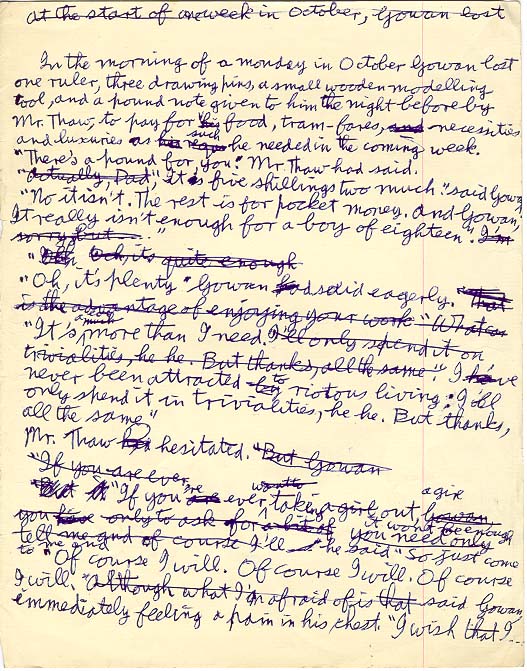 at the start of a week in October, Gowan lost
In the morning of a monday in October Gowan lost
one ruler, three drawing pins, a small wooden modelling
tool, and a pound note given to him the night before by
Mr. Thaw, to pay for his food, tram-fares, and necessities
and luxuries as such he needed in the coming week.
"There's a pound for you." Mr Thaw had said.
"Actually, Dad," It is five shillings two much." said Gowan
"No it isn't. The rest is for pocket money. And Gowan,
It really isn't enough for a boy of eighteen." I'm
sorry but
"Oh, its quite enough
"Oh, it's plenty" Gowan had said eagerly. That
is the advantage of enjoying your work" What
"It's much more than I need. I'll only spend it on
trivialities, he he. But thanks, all the same." I have
never been attracted by to riotous living. I'll
only spend it in trivialities, he he. But, thanks,
all the same"
Mr. Thaw had hesitated. "But Gowan
"If you are ever
But it "If you're are ever wanting taking a girl out Gowan, a girl
you have only to ask for a bit of it won't be enough you need only
tell me and of course I'll he said "So just come
to me and
"Of course I will. Of course I will. Of course
I will. "although what I'm afraid of is that said Gowan
immediately feeling a pain in his chest. "I wish that I ...